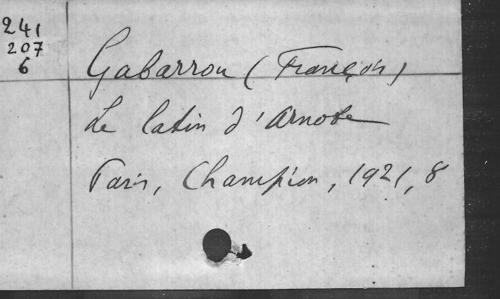 241
207
6
Gabarrou (François)
Le latin d'Arnobe
Paris, Champion, 1921, 8